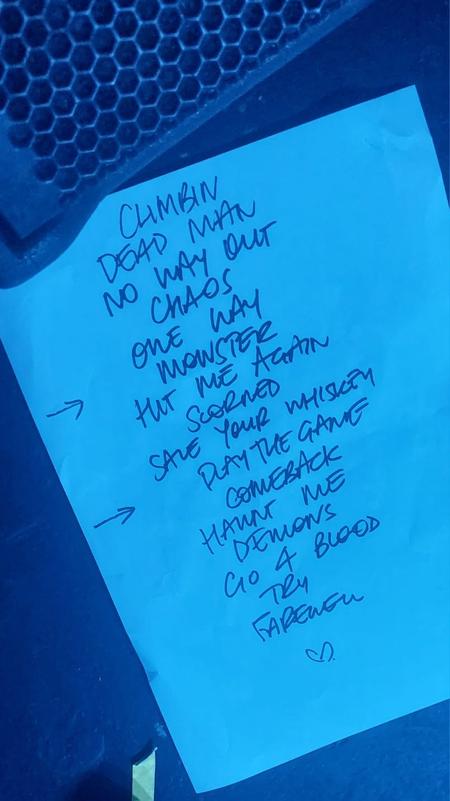 CLIMBIN
DEAD MAN
NO WAY OUT
CHAOS
ONE WAY
MONSTER
→ HIT ME AGAIN
SCORNED
SAVE YOUR WHISKEY
PLAY THE GAME
COMEBACK
→ HAUNT ME
DEMONS
GO 4 BLOOD
TRY
FAREWELL
♡